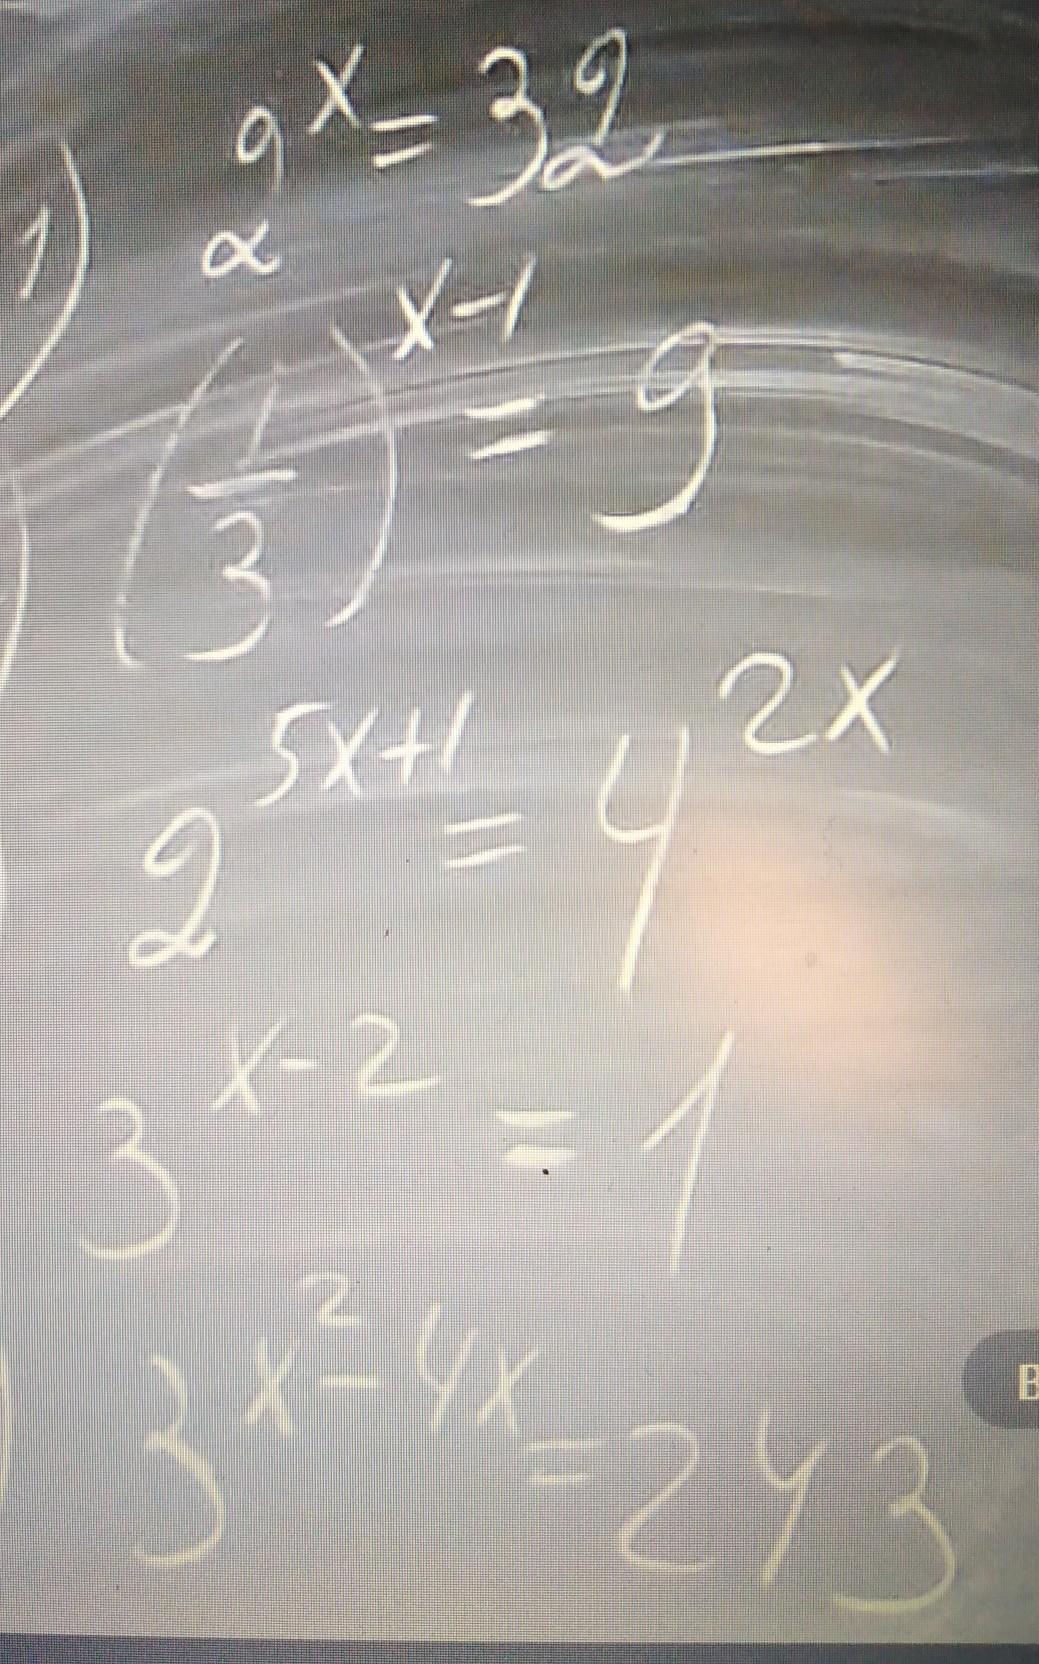 1) 2^x = 32
(1/3)^(x-1) = 9
2^(5x+1) = 4^(2x)
3^(x-2) = 1
3^(x^2-4x) = 243